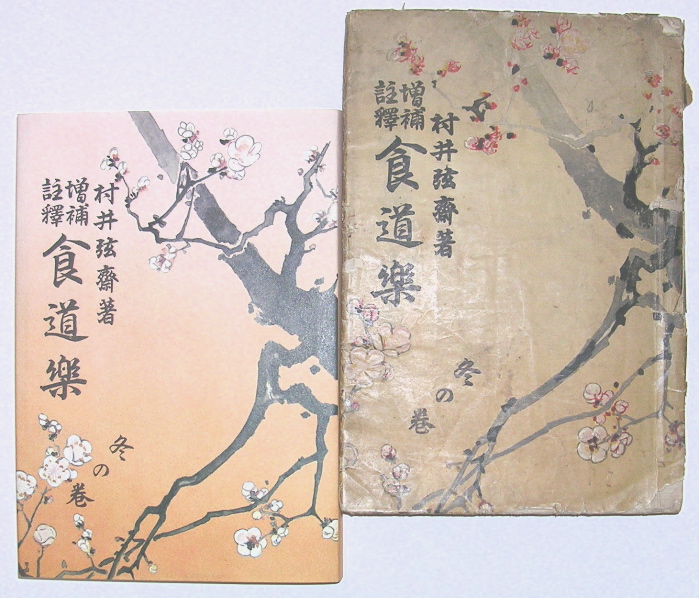 村井弦齋著
増補
註釋
食道樂
冬の卷
村井弦齋著
増補
註釋
食道樂
冬の卷